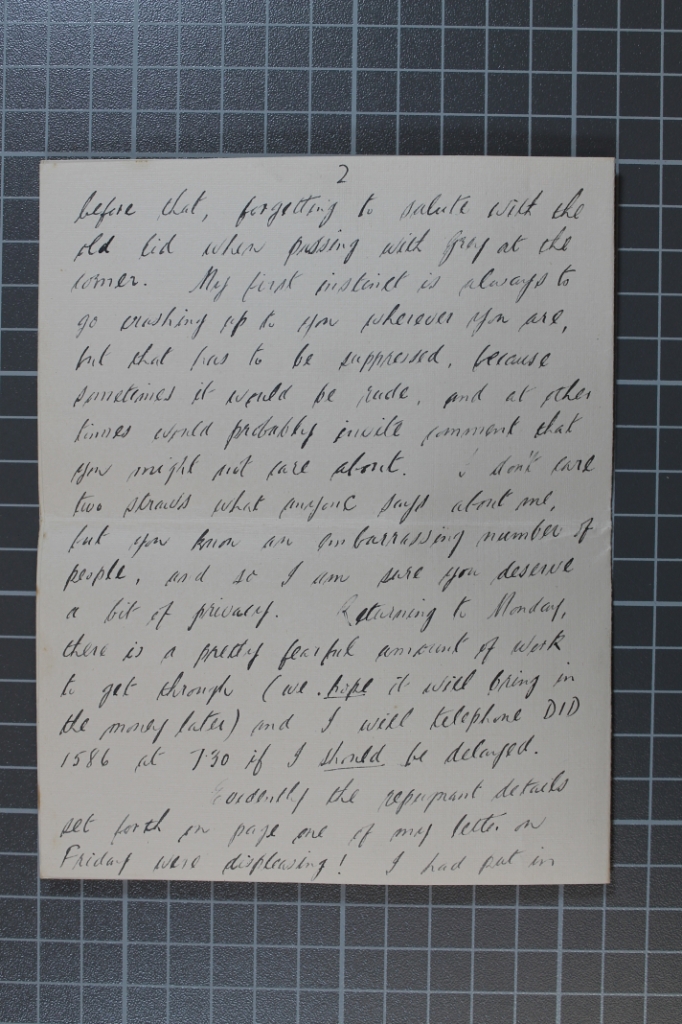 2
before that, forgetting to salute with the
old lid when passing with Gray at the
corner. My first instinct is always to
go crashing up to you wherever you are,
but that has to be suppressed, because
sometimes it would be rude, and at other
times would probably invite comment that
you might not care about. I don't care
two straws what anyone says about me,
but you know an embarrassing number of
people, and so I am sure you deserve
a bit of privacy. Returning to Monday,
there is a pretty fearful amount of work
to get through (we hope it will bring in
the money later) and I will telephone DID
1586 at 7.30 if I should be delayed.
Evidently the repugnant details
set forth on page one of my letter on
Friday were displeasing! I had put in